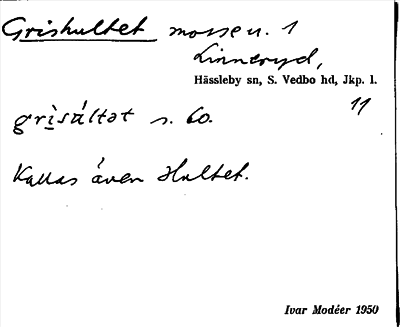 Grishultet mosse u. 1
Linneryd,
Hässleby sn, S. Vedbo hd, Jkp. l.
11
grìsúltət s. Co.
Kallas även Hultet.
Ivar Modéer 1950